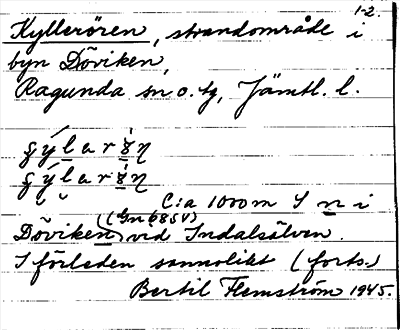 1-2.
Kyllerören, strandområde i
byn Döviken,
Ragunda sn o. tg, Jämtl. l.
C:a 1000 m S n i
Döviken (Gn 6854) vid Indalsälven.
I förleden sannolikt (forts.)
Bertil Flemström 1945.